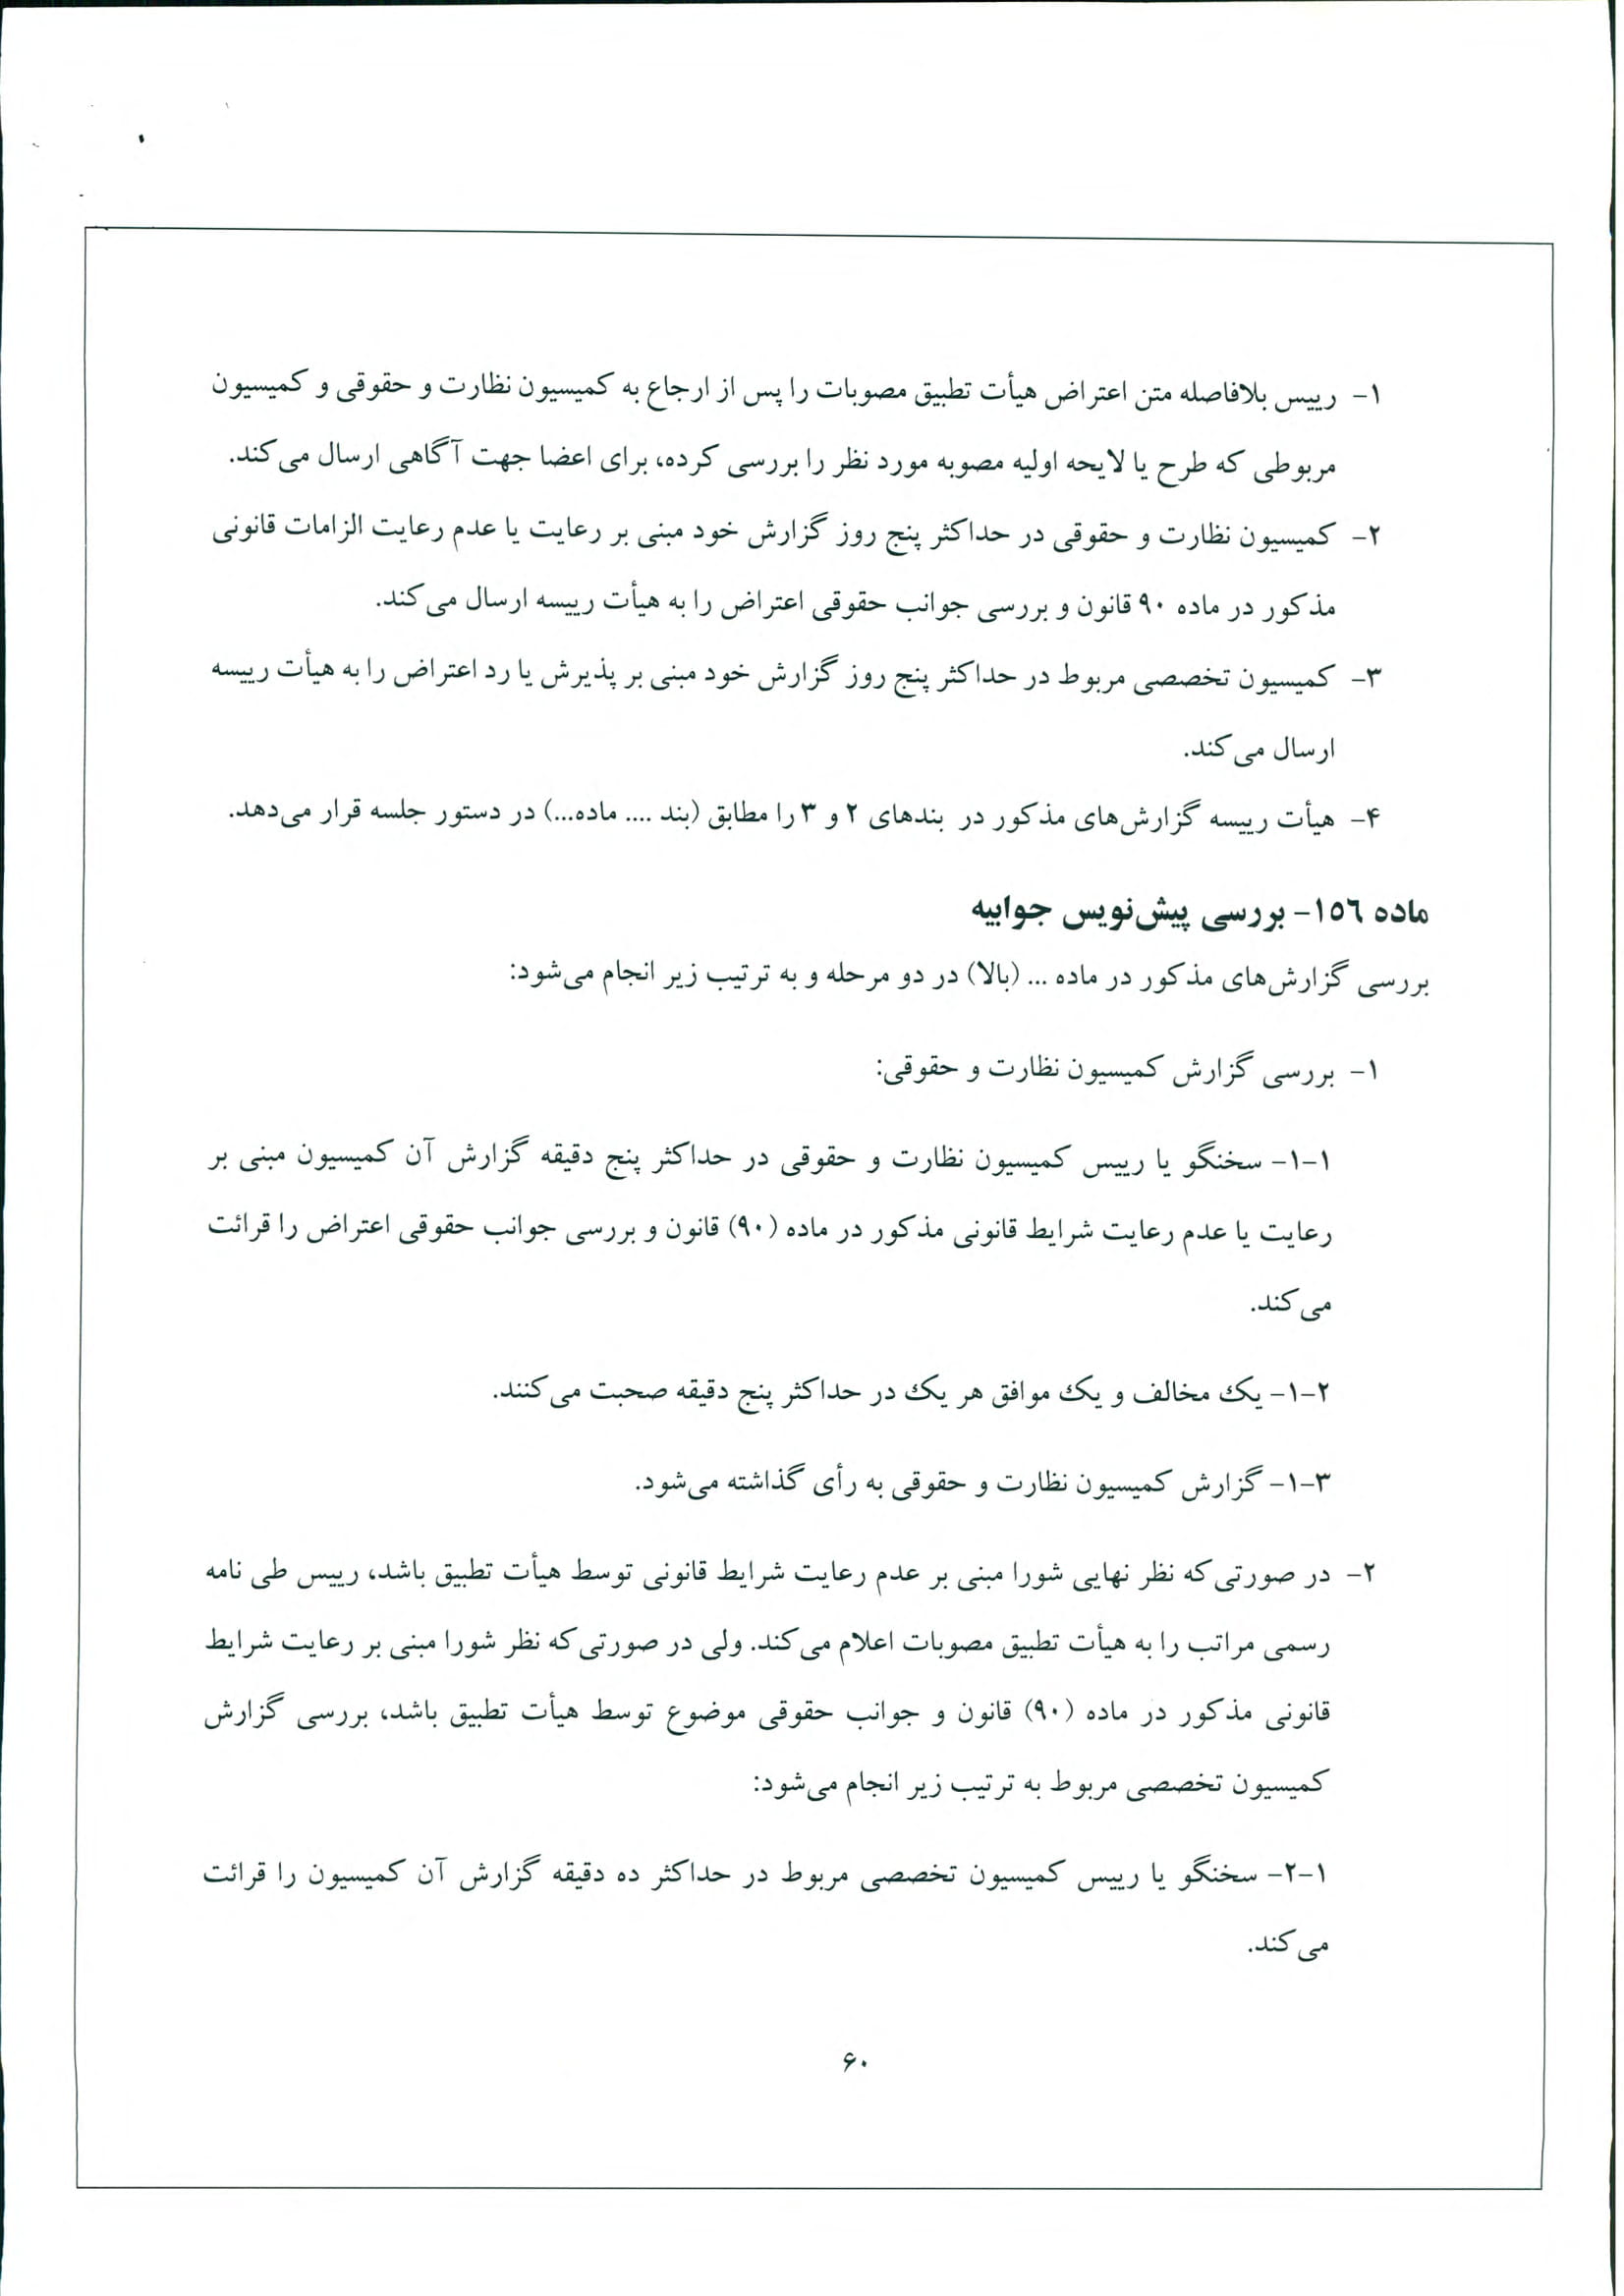 ۱- رییس بلافاصله متن اعتراض هیأت تطبیق مصوبات را پس از ارجاع به کمیسیون نظارت و حقوقی و کمیسیون
مربوطی که طرح یا لایحه اولیه مصوبه مورد نظر را بررسی کرده، برای اعضا جهت آگاهی ارسال می‌کند.
۲- کمیسیون نظارت و حقوقی در حداکثر پنج روز گزارش خود مبنی بر رعایت یا عدم رعایت الزامات قانونی
مذکور در ماده ۹۰ قانون و بررسی جوانب حقوقی اعتراض را به هیأت رییسه ارسال می‌کند.
۳- کمیسیون تخصصی مربوط در حداکثر پنج روز گزارش خود مبنی بر پذیرش یا رد اعتراض را به هیأت رییسه
ارسال می‌کند.
۴- هیأت رییسه گزارش‌های مذکور در بندهای ۲ و ۳ را مطابق (بند .... ماده...) در دستور جلسه قرار می‌دهد.
ماده ۱۵۶- بررسی پیش‌نویس جوابیه
بررسی گزارش‌های مذکور در ماده ... (بالا) در دو مرحله و به ترتیب زیر انجام می‌شود:
۱- بررسی گزارش کمیسیون نظارت و حقوقی:
۱-۱- سخنگو یا رییس کمیسیون نظارت و حقوقی در حداکثر پنج دقیقه گزارش آن کمیسیون مبنی بر
رعایت یا عدم رعایت شرایط قانونی مذکور در ماده (۹۰) قانون و بررسی جوانب حقوقی اعتراض را قرائت
می‌کند.
۱-۲- یک مخالف و یک موافق هر یک در حداکثر پنج دقیقه صحبت می‌کنند.
۱-۳- گزارش کمیسیون نظارت و حقوقی به رأی گذاشته می‌شود.
۲- در صورتی‌که نظر نهایی شورا مبنی بر عدم رعایت شرایط قانونی توسط هیأت تطبیق باشد، رییس طی نامه
رسمی مراتب را به هیأت تطبیق مصوبات اعلام می‌کند. ولی در صورتی‌که نظر شورا مبنی بر رعایت شرایط
قانونی مذکور در ماده (۹۰) قانون و جوانب حقوقی موضوع توسط هیأت تطبیق باشد، بررسی گزارش
کمیسیون تخصصی مربوط به ترتیب زیر انجام می‌شود:
۲-۱- سخنگو یا رییس کمیسیون تخصصی مربوط در حداکثر ده دقیقه گزارش آن کمیسیون را قرائت
می‌کند.
۶۰